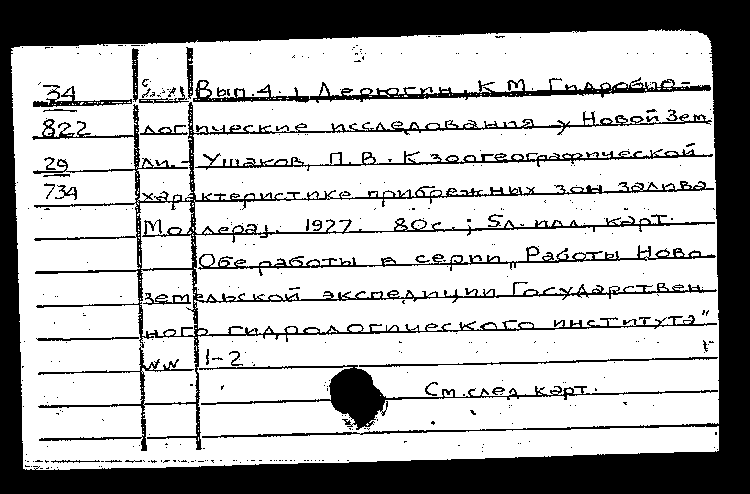 34 Вып. 4. [Дерюгин, К.М. Гидробио-
822 логические исследования у Новой Зем
29 ли. - Ушаков, П.В. К зоогеографической
734 характеристике прибрежных зон залива
Моллера]. 1927. 80с.; 5л. илл., карт.
Обе работы в серии „Работы Ново-
земельской экспедиции Государствен
ного гидрологического института"
NN 1-2.
См. след. карт.